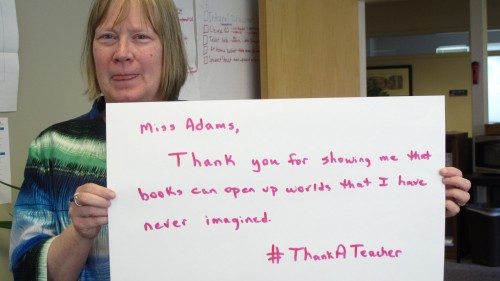 Miss Adams,
Thank you for showing me that
books can open up worlds that I have
never imagined.
# ThankATeacher